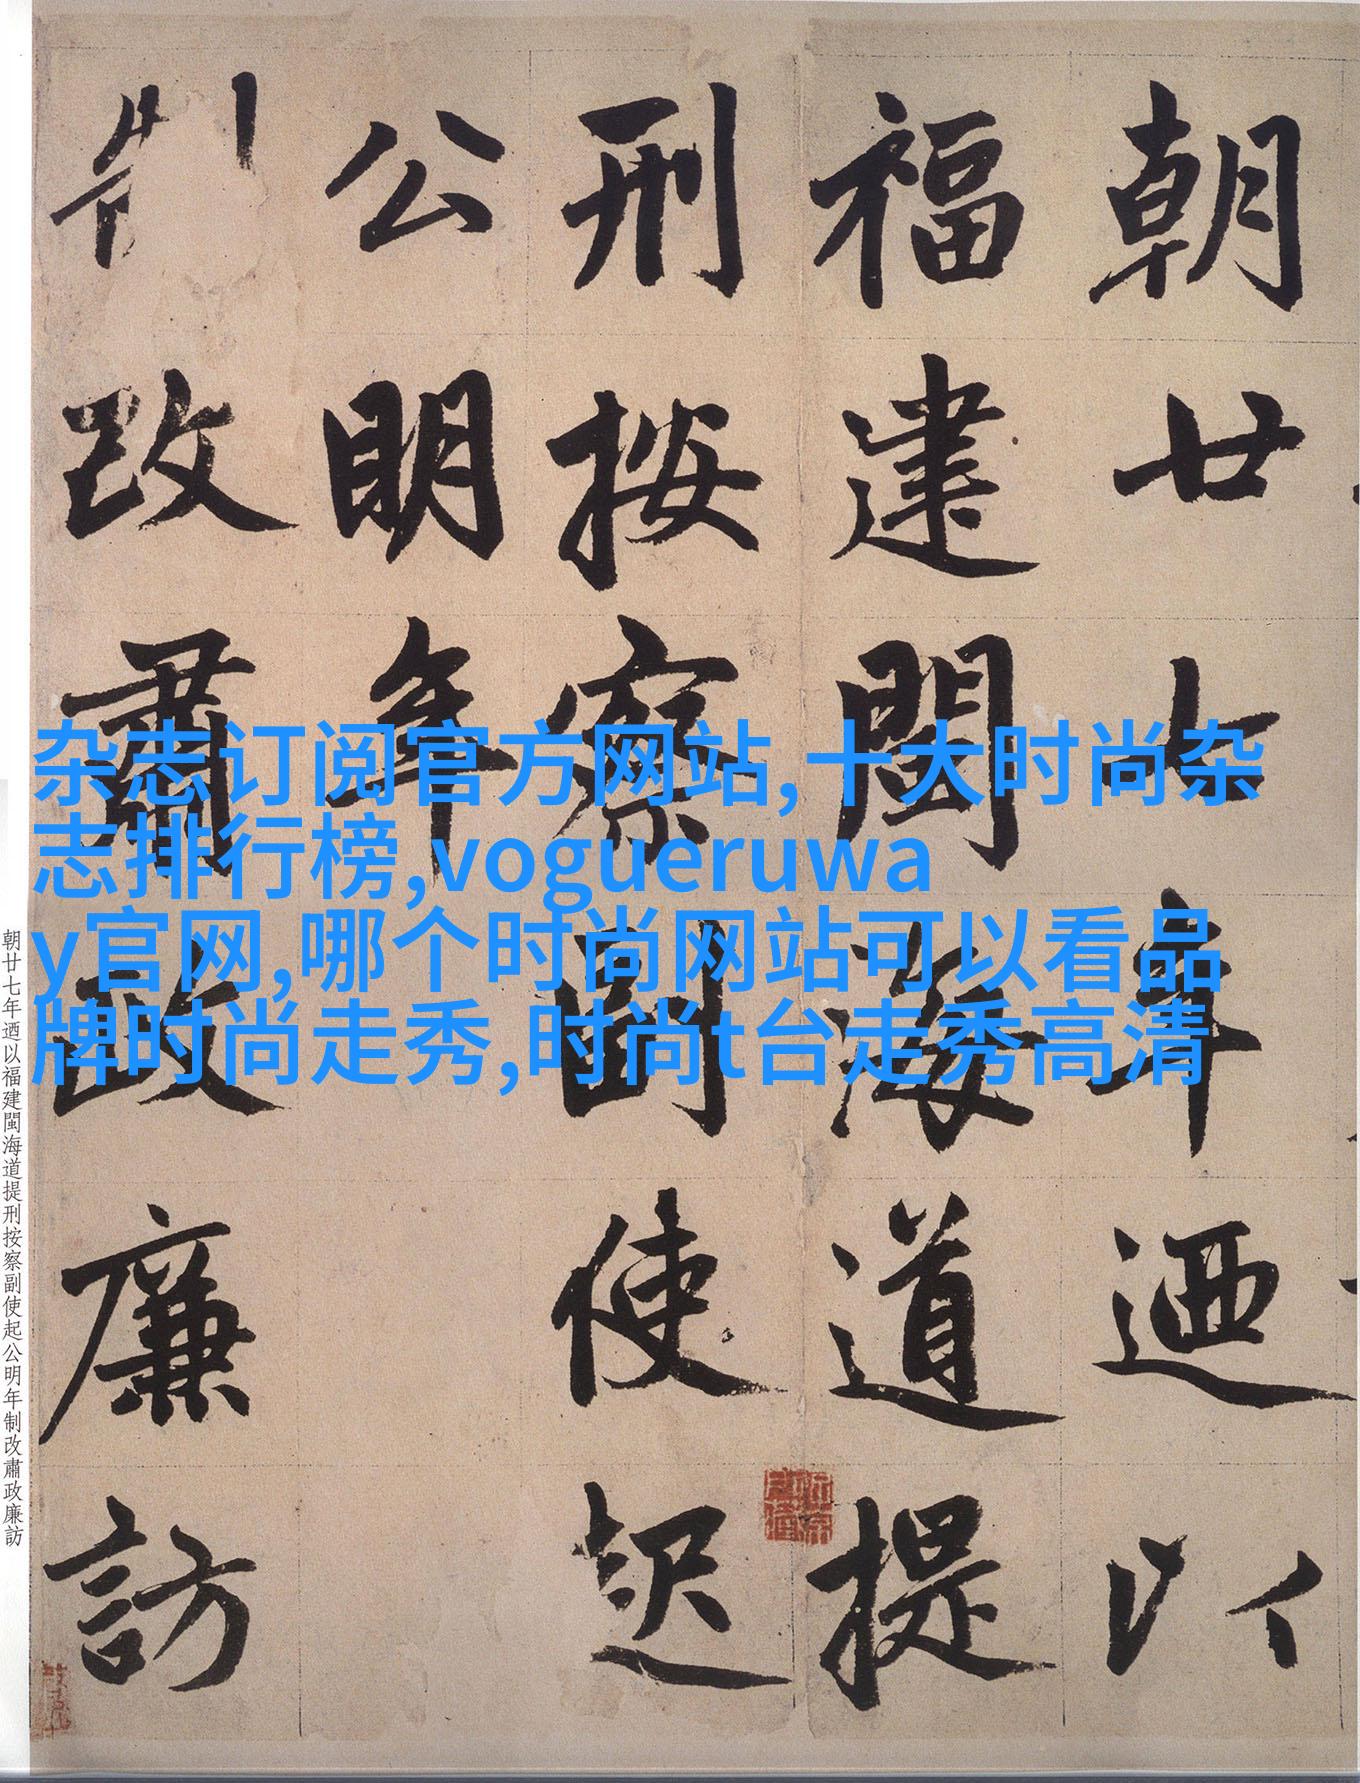 朝廿七年迺以
福建閩海道提
刑按察副使起
公明年
制改肅政廉訪
杂志订阅官方网站,十大时尚杂
志排行榜,vogueruwa
y官网,哪个时尚网站可以看品
牌时尚走秀,时尚t台走秀高清
朝廿七年迺以福建閩海道提刑按察副使起公明年制改肅政廉訪